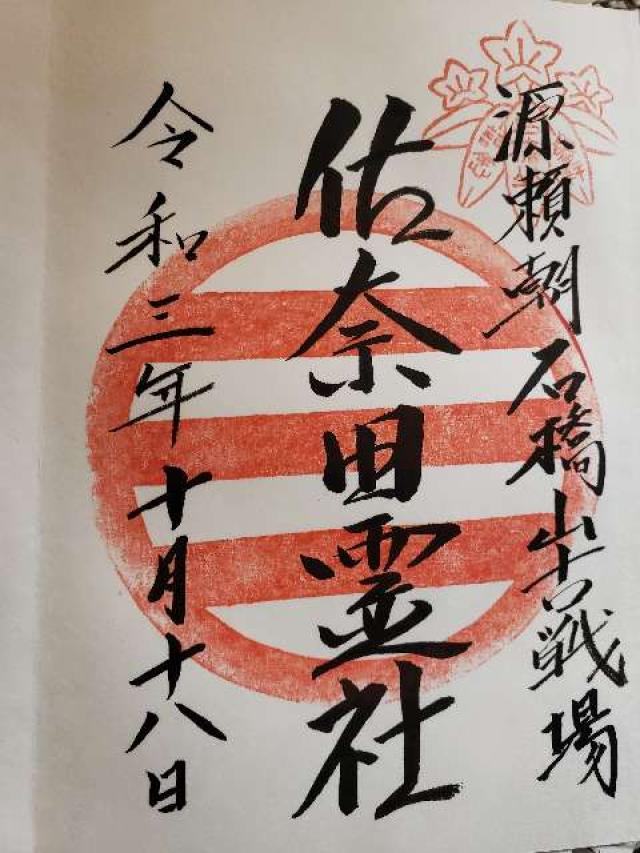 源頼朝石橋山古戦場
佐奈田霊社
令和三年十月十八日